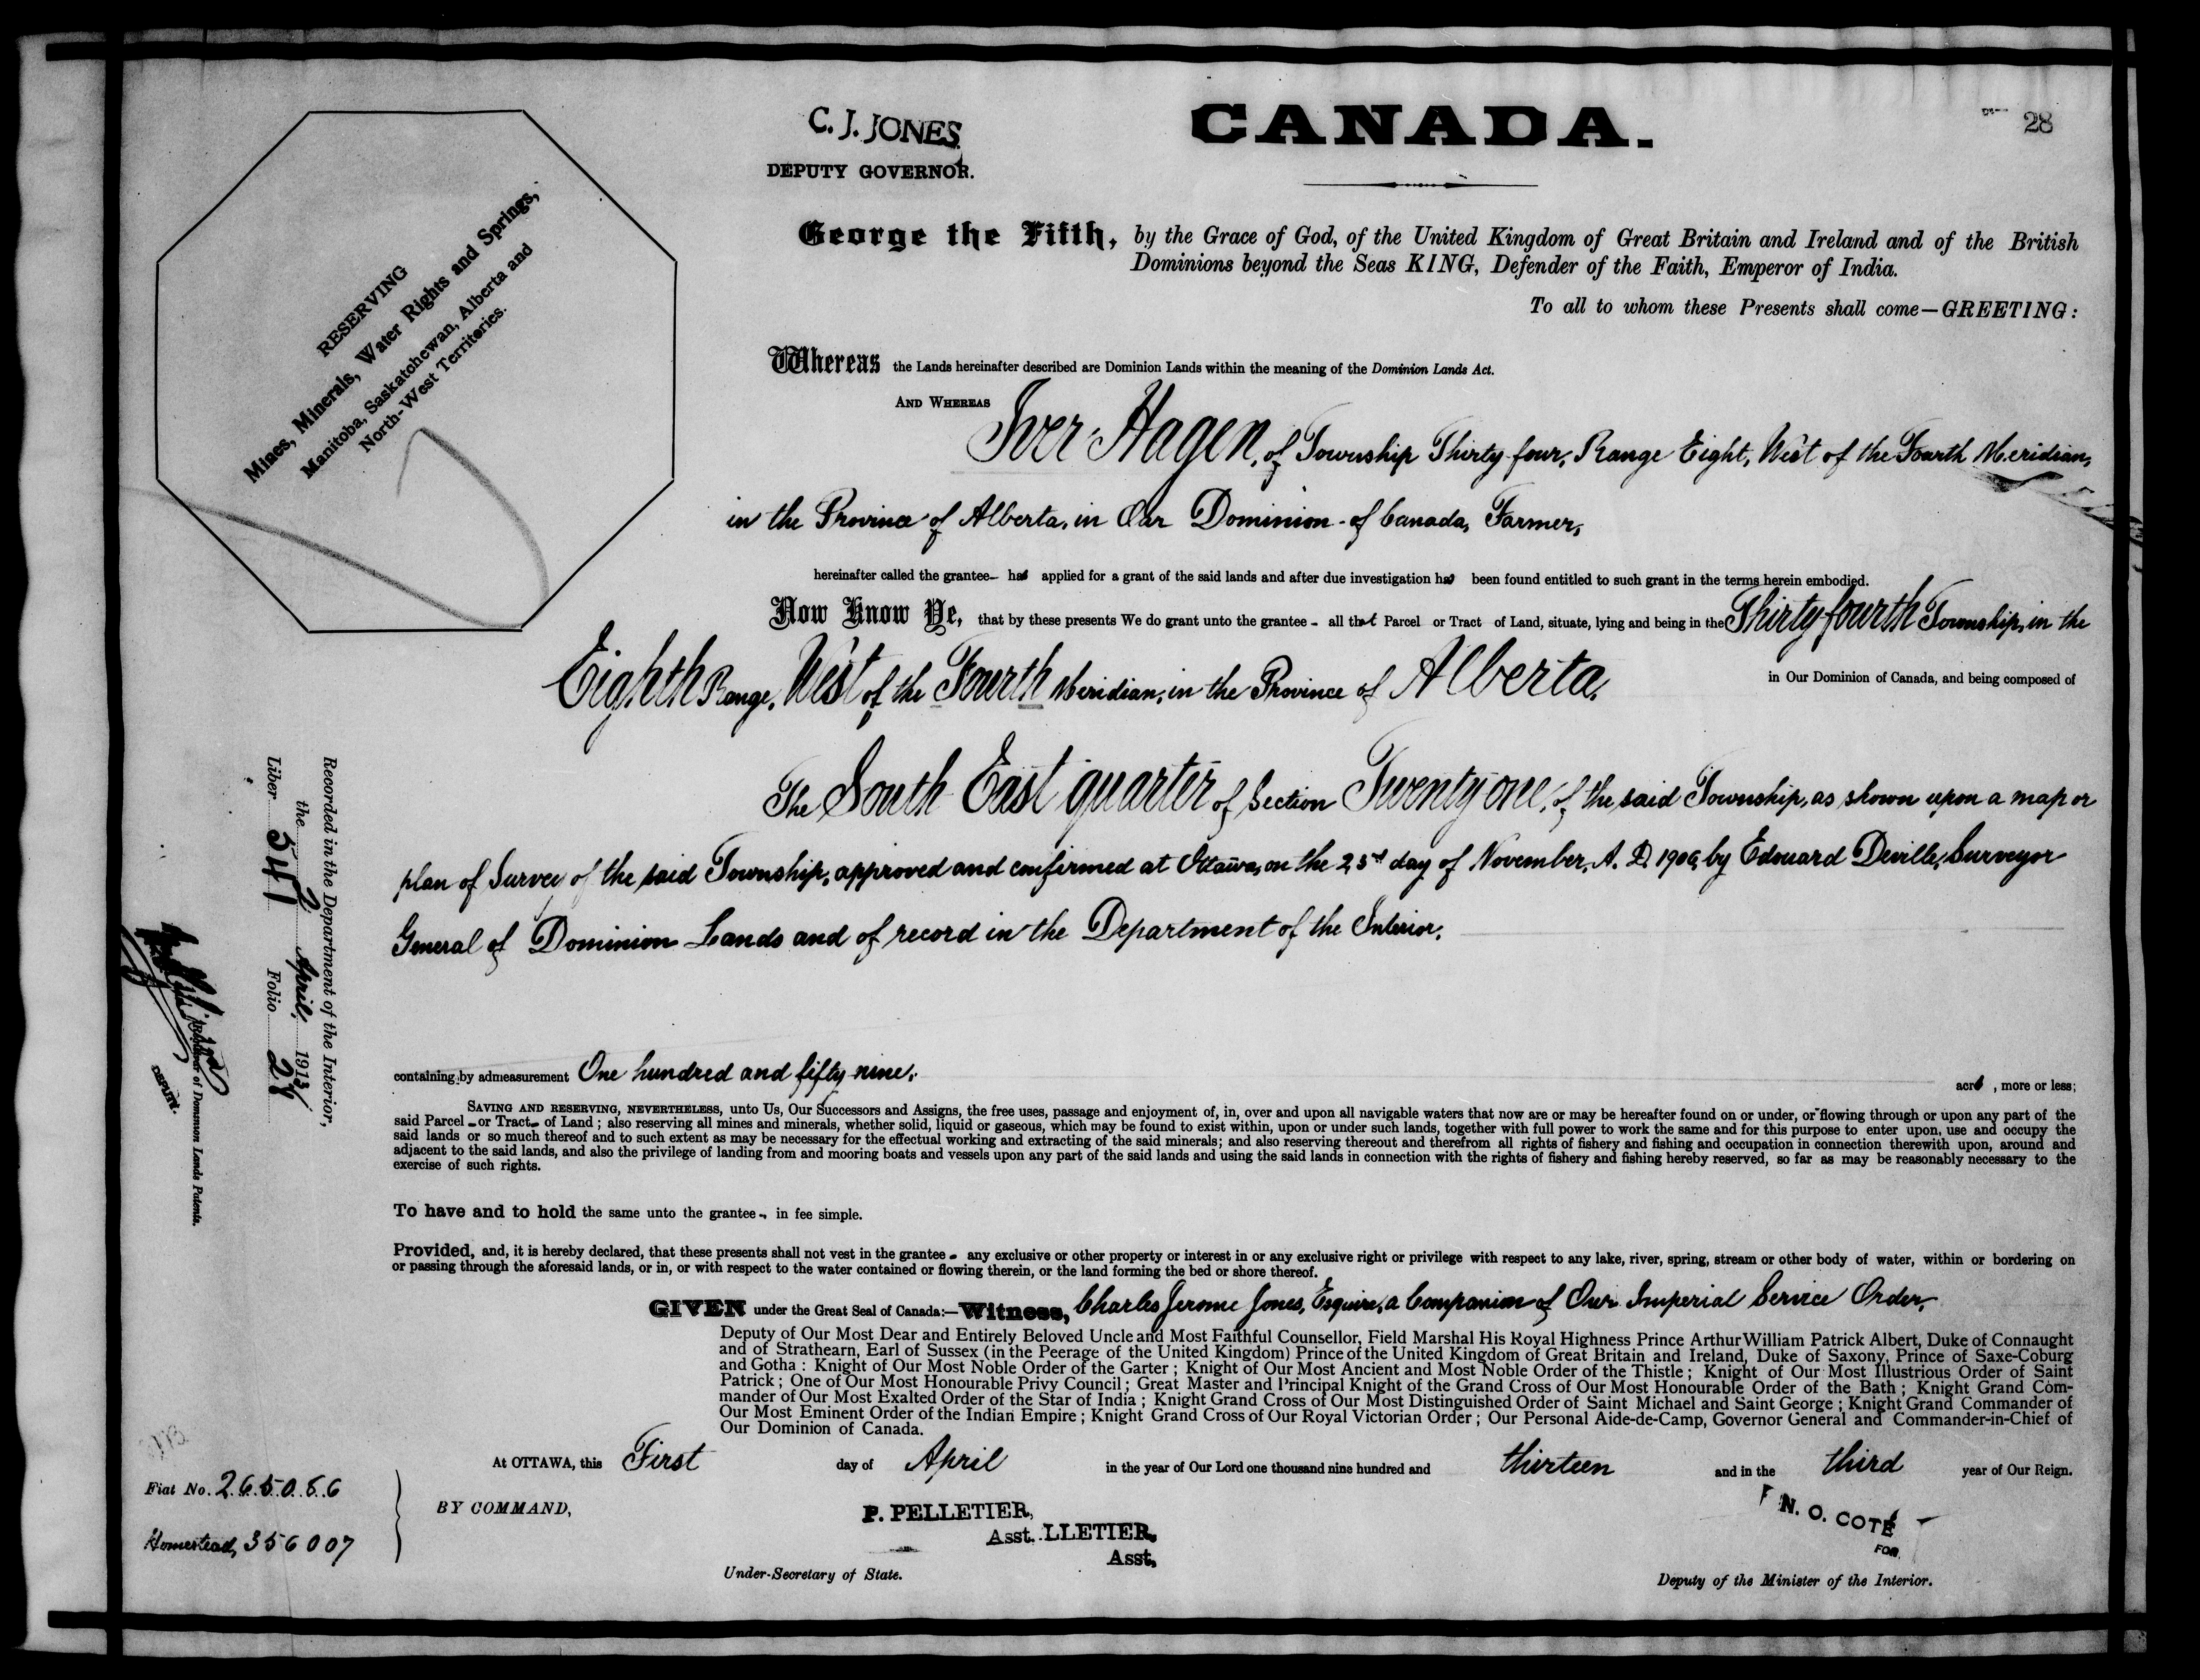 C. J. JONES
DEPUTY GOVERNOR.
CANADA.
28
RESERVING
Mines, Minerals, Water Rights and Springs,
Manitoba, Saskatchewan, Alberta and
North-West Territories.
George the Fifth, by the Grace of God, of the United Kingdom of Great Britain and Ireland and of the British
Dominions beyond the Seas KING, Defender of the Faith, Emperor of India.
To all to whom these Presents shall come—GREETING:
Whereas the Lands hereinafter described are Dominion Lands within the meaning of the Dominion Lands Act.
AND WHEREAS Iver Hagen, of Township Thirty four, Range Eight, West of the Fourth Meridian,
in the Province of Alberta, in Our Dominion of Canada, Farmer,
hereinafter called the grantee— has applied for a grant of the said lands and after due investigation has been found entitled to such grant in the terms herein embodied.
Now Know Ye, that by these presents We do grant unto the grantee - all that Parcel or Tract of Land, situate, lying and being in the Thirty fourth Township, in the
Eighth Range, West of the Fourth Meridian, in the Province of Alberta, in Our Dominion of Canada, and being composed of
The South East quarter of Section Twenty one, of the said Township, as shown upon a map or
plan of Survey of the said Township, approved and confirmed at Ottawa, on the 23rd day of November, A. D. 1906, by Edouard Deville, Surveyor
General of Dominion Lands and of record in the Department of the Interior.
Recorded in the Department of the Interior,
the 2 April, 1913
Liber 541 Folio 28
Registrar of Dominion Lands Patents.
DEPUTY.
containing by admeasurement One hundred and fifty nine. acres, more or less;
SAVING AND RESERVING, NEVERTHELESS, unto Us, Our Successors and Assigns, the free uses, passage and enjoyment of, in, over and upon all navigable waters that now are or may be hereafter found on or under, or flowing through or upon any part of the
said Parcel - or Tract - of Land; also reserving all mines and minerals, whether solid, liquid or gaseous, which may be found to exist within, upon or under such lands, together with full power to work the same and for this purpose to enter upon, use and occupy the
said lands or so much thereof and to such extent as may be necessary for the effectual working and extracting of the said minerals; and also reserving thereout and therefrom all rights of fishery and fishing and occupation in connection therewith upon, around and
adjacent to the said lands, and also the privilege of landing from and mooring boats and vessels upon any part of the said lands and using the said lands in connection with the rights of fishery and fishing hereby reserved, so far as may be reasonably necessary to the
exercise of such rights.
To have and to hold the same unto the grantee -, in fee simple.
Provided, and, it is hereby declared, that these presents shall not vest in the grantee - any exclusive or other property or interest in or any exclusive right or privilege with respect to any lake, river, spring, stream or other body of water, within or bordering on
or passing through the aforesaid lands, or in, or with respect to the water contained or flowing therein, or the land forming the bed or shore thereof.
GIVEN under the Great Seal of Canada:—Witness, Charles Jerome Jones, Esquire, a Companion of Our Imperial Service Order,
Deputy of Our Most Dear and Entirely Beloved Uncle and Most Faithful Counsellor, Field Marshal His Royal Highness Prince Arthur William Patrick Albert, Duke of Connaught
and of Strathearn, Earl of Sussex (in the Peerage of the United Kingdom) Prince of the United Kingdom of Great Britain and Ireland, Duke of Saxony, Prince of Saxe-Coburg
and Gotha: Knight of Our Most Noble Order of the Garter; Knight of Our Most Ancient and Most Noble Order of the Thistle; Knight of Our Most Illustrious Order of Saint
Patrick; One of Our Most Honourable Privy Council; Great Master and Principal Knight of the Grand Cross of Our Most Honourable Order of the Bath; Knight Grand Com-
mander of Our Most Exalted Order of the Star of India; Knight Grand Cross of Our Most Distinguished Order of Saint Michael and Saint George; Knight Grand Commander of
Our Most Eminent Order of the Indian Empire; Knight Grand Cross of Our Royal Victorian Order; Our Personal Aide-de-Camp, Governor General and Commander-in-Chief of
Our Dominion of Canada.
At OTTAWA, this First day of April in the year of Our Lord one thousand nine hundred and thirteen and in the third year of Our Reign.
Fiat No. 265086
Homestead, 356007
BY COMMAND,
P. PELLETIER,
Asst. LLETIER,
Asst,
Under-Secretary of State.
N. O. COTÉ
FOR
Deputy of the Minister of the Interior.